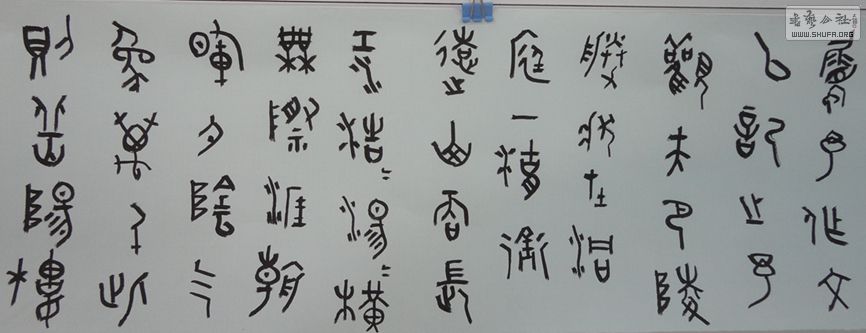 屬予作文
以記之予
觀夫巴陵
勝狀在洞
庭一湖銜
遠山吞長
江浩=湯=橫
無際涯朝
暉夕陰气
象萬千此
則岳陽樓
书艺公社
WWW.SHUFA.ORG